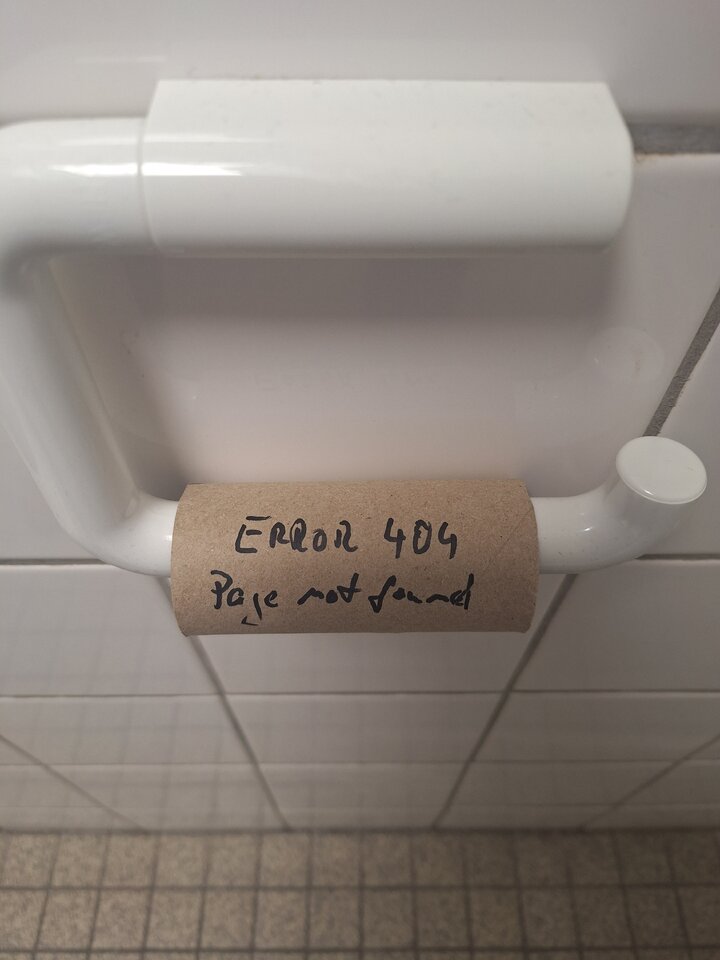 ERROR 404
Page not found